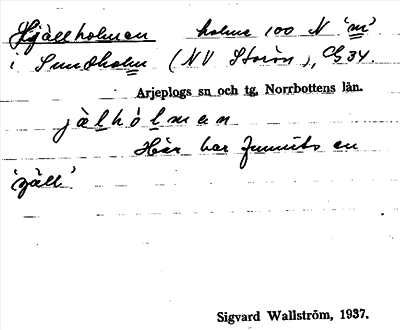 Hjällholmen holme 100 N 'm'
i Sundholm (NV Storön), Cg 34.
Arjeplogs sn och tg, Norrbottens län.
jàlhólman
Här har funnits en
'jäll'
Sigvard Wallström, 1937.